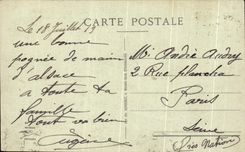 CARTE POSTALE
Le 18 Juillet 19
une bonne
poignée de main
d'alsace
a toute ta
famille
tout va bien
Eugène
Mr André Audry
2 Rue planchat
Paris
Seine
Près Nation